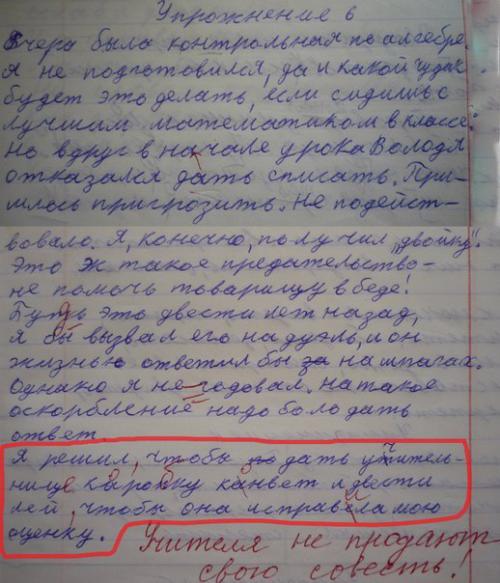 Упражнение 6
Вчера была контрольная по алгебре.
Я не подготовился, да и какой чудак
будет это делать, если сидишь с
лучшим математиком в классе.
Но вдруг в начале урока Володя
отказался дать списать. При-
шлось пригрозить. Не подейст-
вовало. Я, конечно, получил "двойку".
Это ж такое предательство-
не помочь товарищу в беде!
Будь это двести лет назад,
я бы вызвал его на дуэль, и он
жизнью ответил бы за на шпагах.
Однако я негодовал. На такое
оскорбление надо было дать
ответ.
Я решил, чтобы дать учитель-
нице каробку канвет и двести
лей, чтобы она исправила мою
оценку.
Учителя не продают
свою совесть!